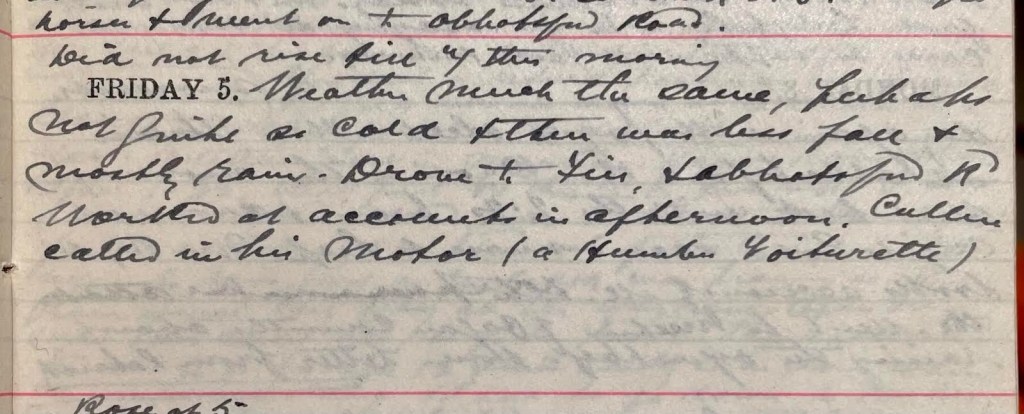 horses & went on to Abbotsford Road.
Did not rise till 7 this morning
FRIDAY 5. Weather much the same, perhaps
not quite so cold & there was less fall &
mostly rain. Drove to & Abbotsford Rd
Worked at accounts in afternoon. Cullen
called in his Motor (a Humber Voiturette)
Rose at 5